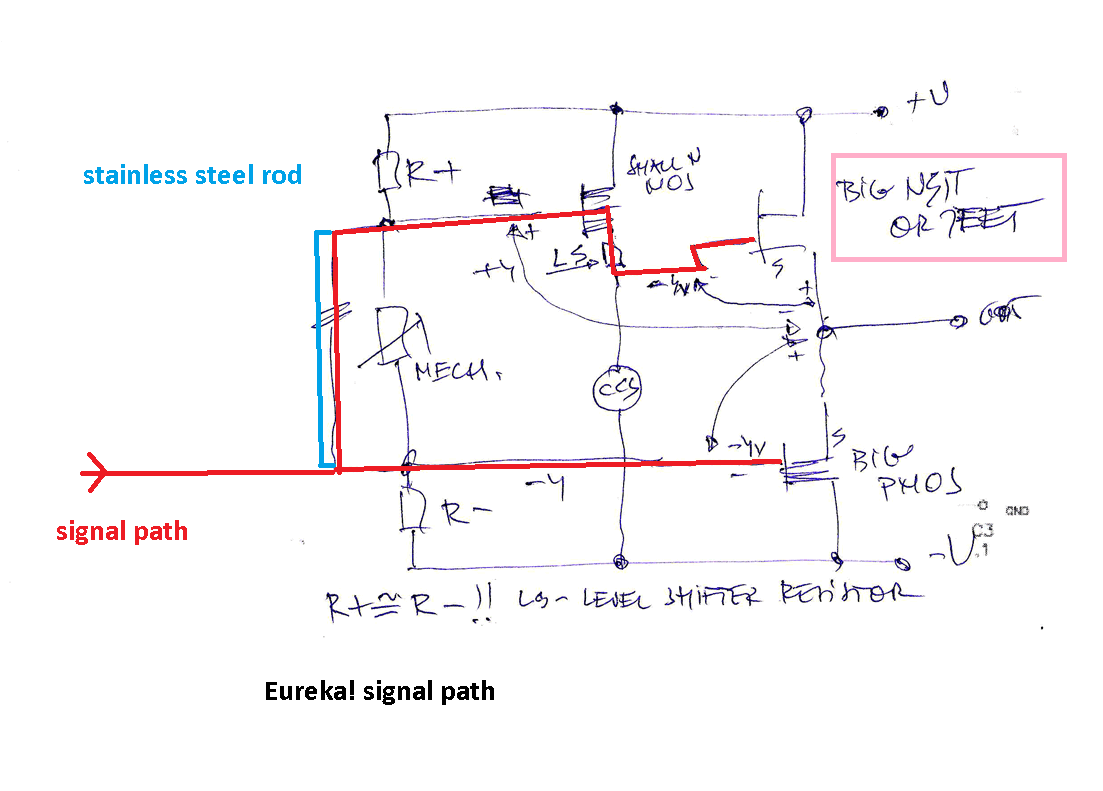 +U
stainless steel rod
R+
SMALL N
MOS
BIG NSIT
OR
+
+4
LS
S
-4V
+
-
OUT
+
MECH.
CCS
-4V
-
S
BIG
PMOS
-4
signal path
R-
GND
C3
.1
-U
R+≅R-!! LS- LEVEL SHIFTER RESISTOR
Eureka! signal path